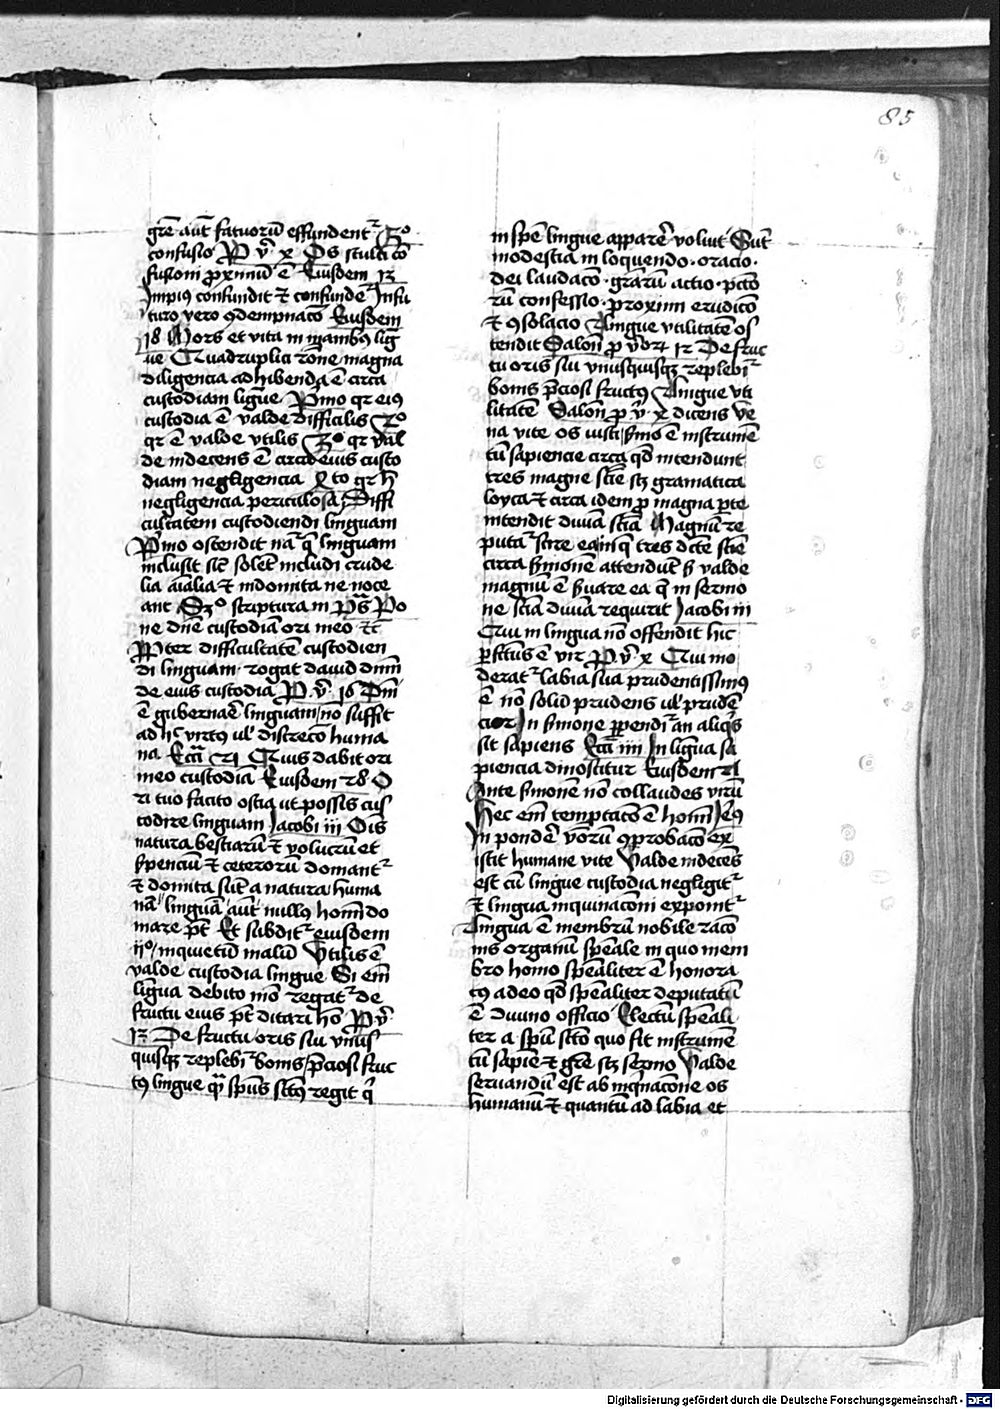 85
grē aūt fatuorū effundentʳ 3º
confusio P vͬ x Os stulti cō
fusioni proximū ē Eiusdem 13
Impius confundit et confundeʳ In fu
turo vero 9dempnacō Eiusdem
18 Mors et vita in manibꝰ lig
ue Quadruplici rōne magna
diligencia adhibenda ē circa
custodiam ligue Pmo qr eiꝰ
custodia ē valde difficilis 2º
qr ē valde vtilis 3º qr val
de indecens ē circa eius custo
diam negligencia 4to qr h
negligencia periculosa Diffi
cultatem custodiendi linguam
Pmo ostendit naͬ q linguam
inclusit sic̄ solet includi crude
lia aīalia et indomita ne noce
ant 2º scriptura in Pͦs Po
ne dn̄e custodiā ori meo etc
Ppter difficultatē custodien
di linguam rogat dauid dnm̄
de eius custodia P vͬ 16 Dnī
ē gubernaʳe linguam nō suffit
ad hͨ virtꝰ ul' discrecō huma
na Ecci 22 Quis dabit ori
meo custodiā Eiusdem 28 O
ri tuo facito ostia ut possis cus
todire linguam Jacobi iii Oīs
natura bestiarū et volucrū et
serpenciū et ceterorū domantʳ
et domita sūt a natura huma
nā linguā aūt nullꝰ hom̄ do
mare pt̄ Et subditʳ eiusdem
iiº inquietū malū Vtilis ē
valde custodia lingue Si em̄
ligua debito mō regatʳ de
fructu eius pt̄ ditari hō P vͬ
12 De fructu oris sui vnus
quisqz replebiʳ bonis p̄ciosi fruc
tꝰ lingue qͥ spūs sctꝰ regit qͥ
in spē lingue apparēʳ voluit Sūt
modestia in loquendo oracio
dei laudacō grārū actio pctō
rū confessio proximi erudicō
et 9solacio Lingue vtilitatē os
tendit Salon p vͬbꝛ 12 De fruc
tu oris sui vnusquisqz replebiʳ
bonis p̄ciosi fructꝰ Lingue vti
litatē Salon p vͬ x dicens ve
na vite os iusti sermo ē instrumē
tū sapiencie circa qd intendunt
tres magne scīe scz gramatica
loyca et circa idem p magna pte
intendit diuīa scīa Magnū re
putaʳ scire ea in q tres dc̄te scīe
circa sermonē attendūt s valde
magnū ē seruare ea q in sermo
ne scīa diuīa requirit Jacobi iii
Qui in lingua nō offendit hic
perfectus ē vir P vͬ x Qui mo
deratʳ labia sua prudentissimꝰ
ē nō solū prudens ul' prudē
cior In sermone perpendiʳ an aliqͥs
sit sapiens Ecci iiii In ligua sa
piencia dinoscitur Eiusdem 21
Ante sermonē nō collaudes virū
Hec em̄ temptacō ē homī
In pondeʳe vͬborū 9probacō ex
istit humane vite Valde indecēs
est cū lingue custodia negligitʳ
et lingua inquinacōni exponitʳ
Lingua ē membrū nobile racō
nis organū speāle in quo mem
bro homo speāliter ē honora
tꝰ adeo qd speāliter deputatū
ē diuino officio Electū speāli
ter a spū scto quo fit instrumē
tū sapīe et grē scz sermo Valde
seruandū est ab inqinacōne os
humanū et quantū ad labia et
Digitalisierung gefördert durch die Deutsche Forschungsgemeinschaft - DFG